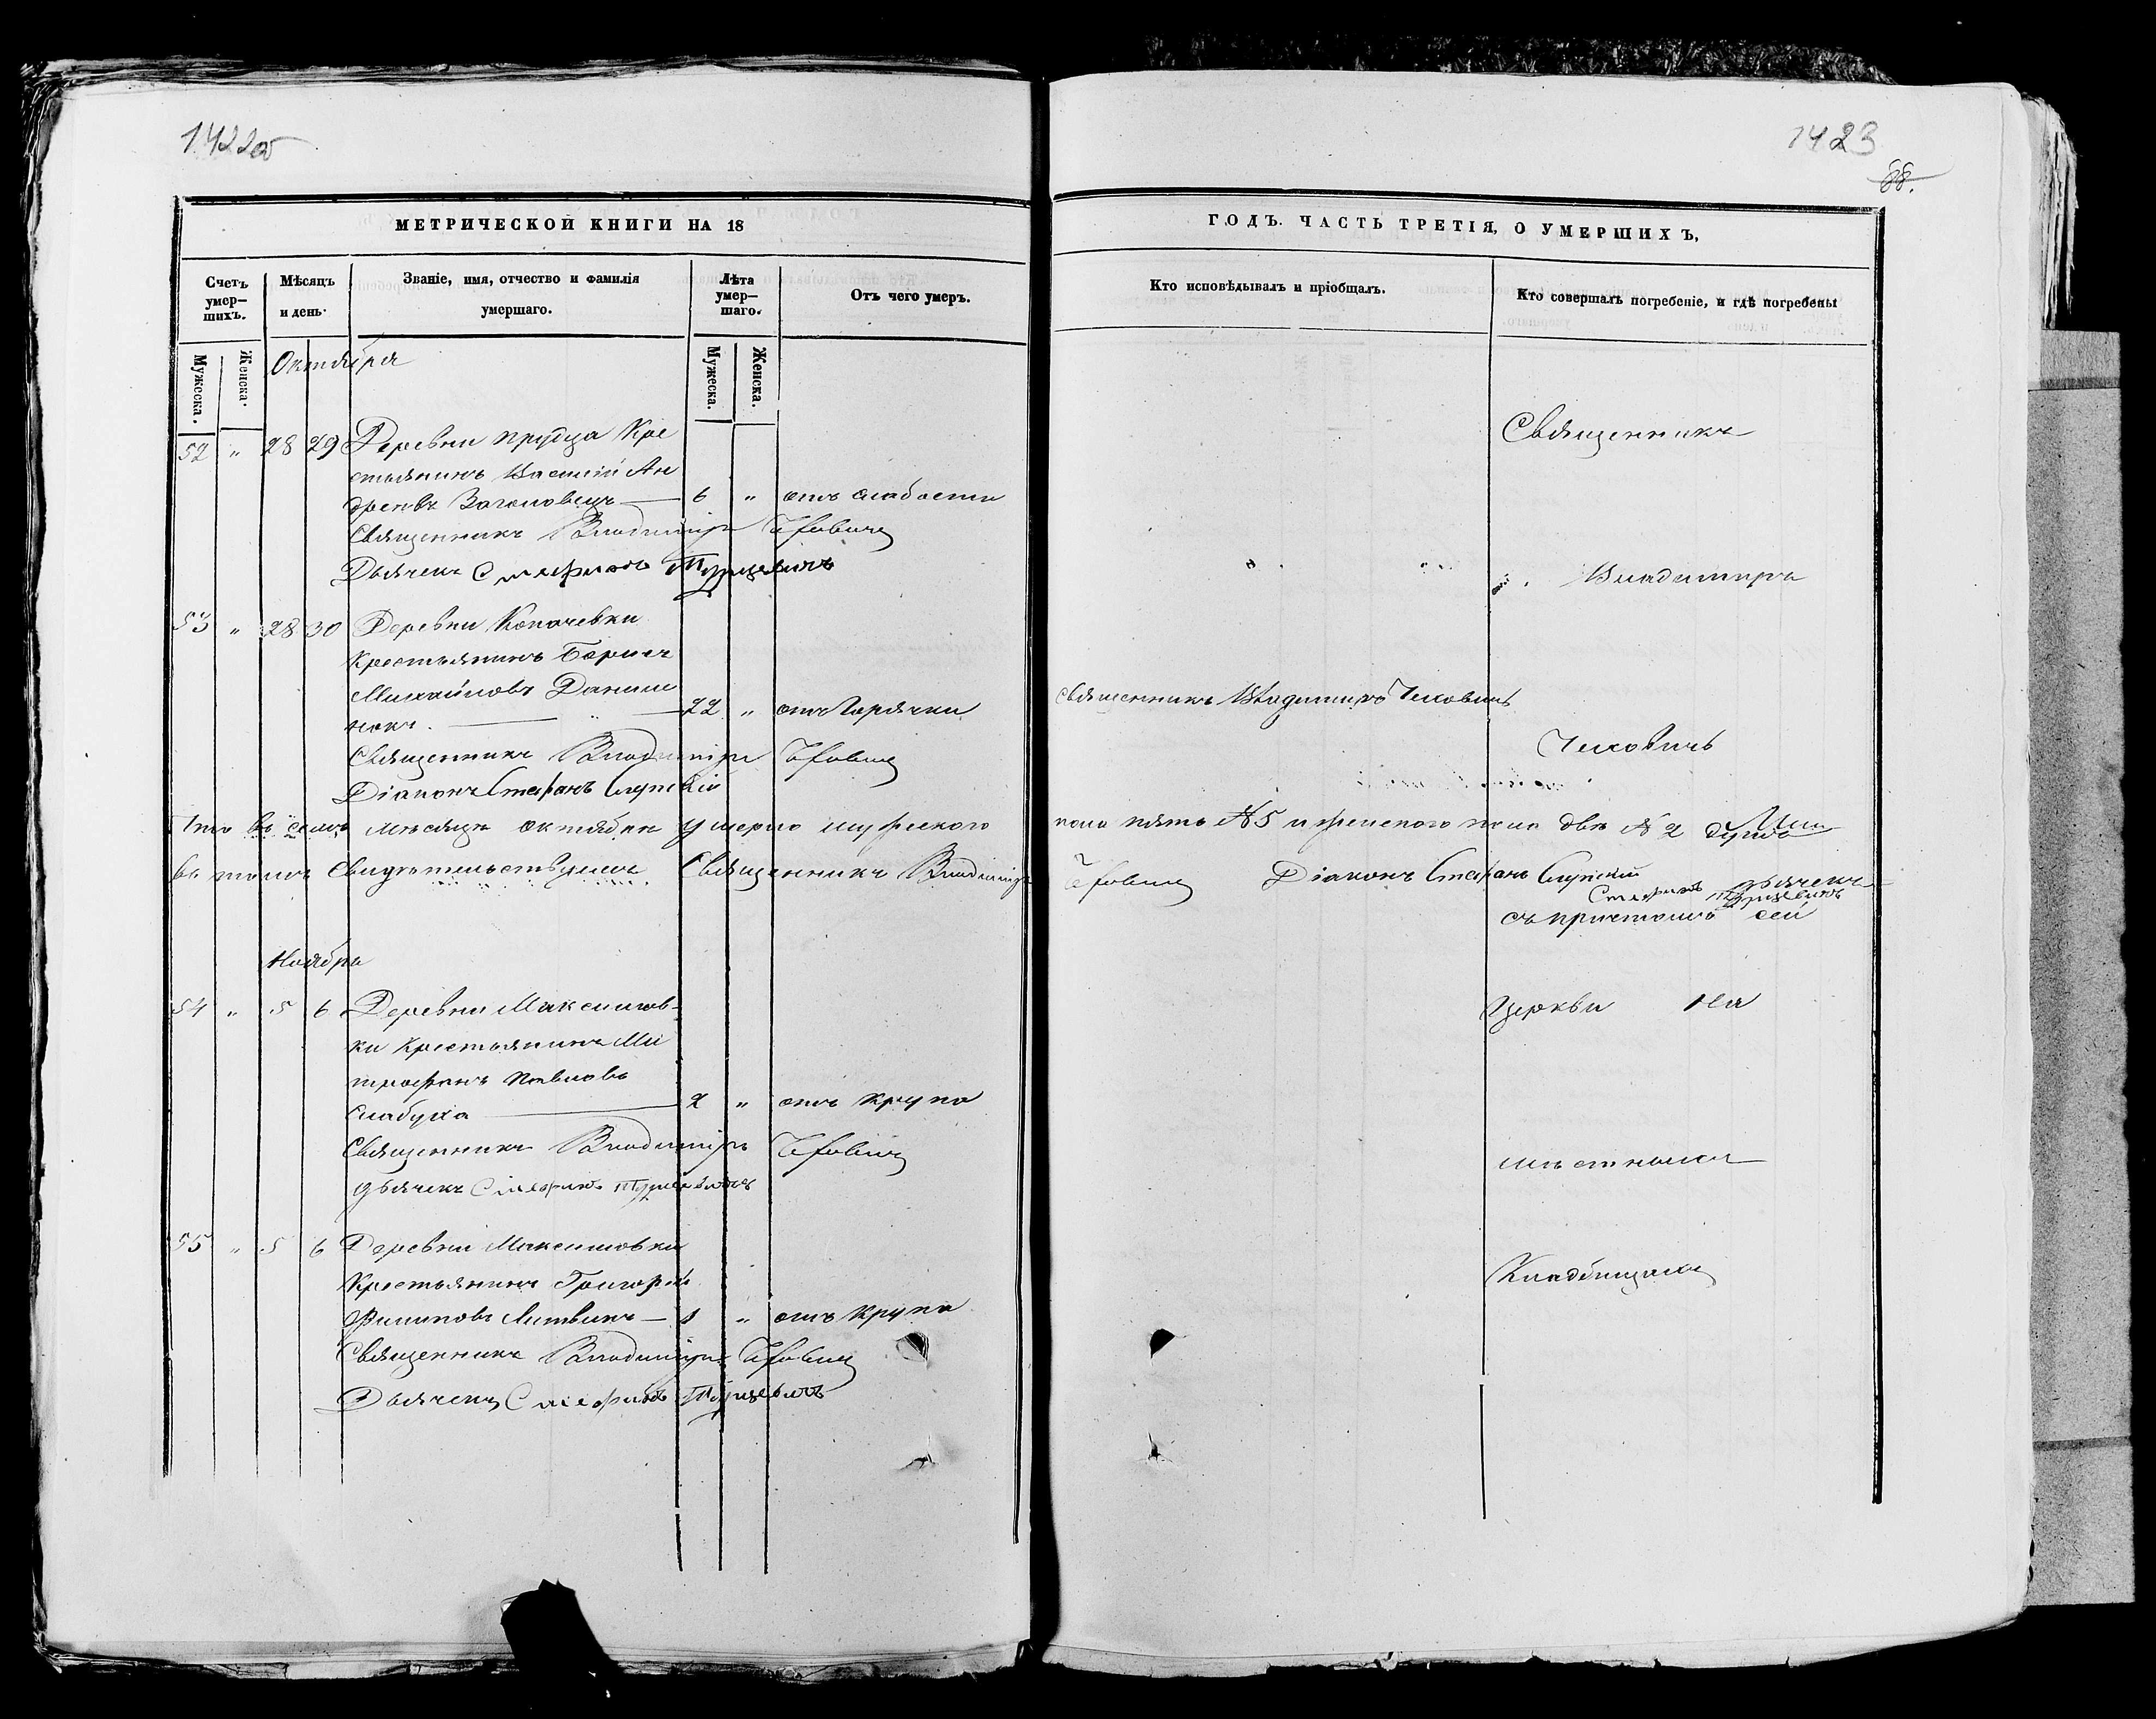 1422об
МЕТРИЧЕСКОЙ КНИГИ НА 18
Счетъ умер-шихъ.
Мѣсяцъ и день.
Званіе, имя, отчество и фамилія умершаго.
Лѣта умер-шаго.
Отъ чего умеръ.
Мужеска.
Женска.
Мужеска.
Женска.
Октября
52 " 28 29 Деревни Прудца Кре
стьянинъ Василій Ан
дреевъ — 6 " отъ слабости
Священникъ Владиміръ
Дьячекъ Стефанъ Турцевичъ
53 " 28 30 Деревни Копачевки
Крестьянинъ Борисъ
Михайловъ Данилю
нокъ. — 22 " отъ Горячки
Священникъ Владиміръ
Діаконъ Стефанъ
Что въ семъ мѣсяцѣ октябрѣ умерло мужескаго
въ томъ свидѣтельствуемъ Священникъ Владиміръ
Ноября
54 " 5 6 Деревни Максимов-
ки Крестьянинъ Ми
трофанъ Павловъ
Слабуха — 2 " отъ крупа
Священникъ Владиміръ
дьячекъ Стефанъ Турцевичъ
55 " 5 6 Деревни Максимовки
Крестьянинъ Григорій
Филиповъ Литвинъ — 1 " отъ крупа
Священникъ Владиміръ
Дьячекъ Стефанъ Турцевичъ
1423
88.
ГОДЪ. ЧАСТЬ ТРЕТІЯ, О УМЕРШИХЪ,
Кто исповѣдывалъ и пріобщалъ.
Кто совершалъ погребеніе, и гдѣ погребены
Священникъ
Владиміръ
Священникъ Владиміръ Чеховичъ
Чеховичъ
пола пять №5 и женского пола двѣ №2 душъ
Діаконъ Стефанъ
дьячекъ
Стефанъ Турцевичъ
съ причтомъ сей
Церкви На
мѣстномъ
Кладбищахъ